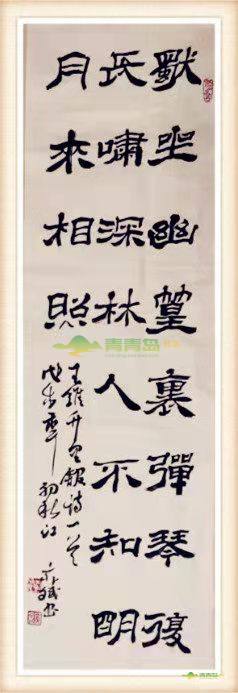 獨坐幽篁裏彈琴復
長嘯深林人不知明
月來相照
王維竹里館詩一首
初秋江
書
青青岛
青青岛